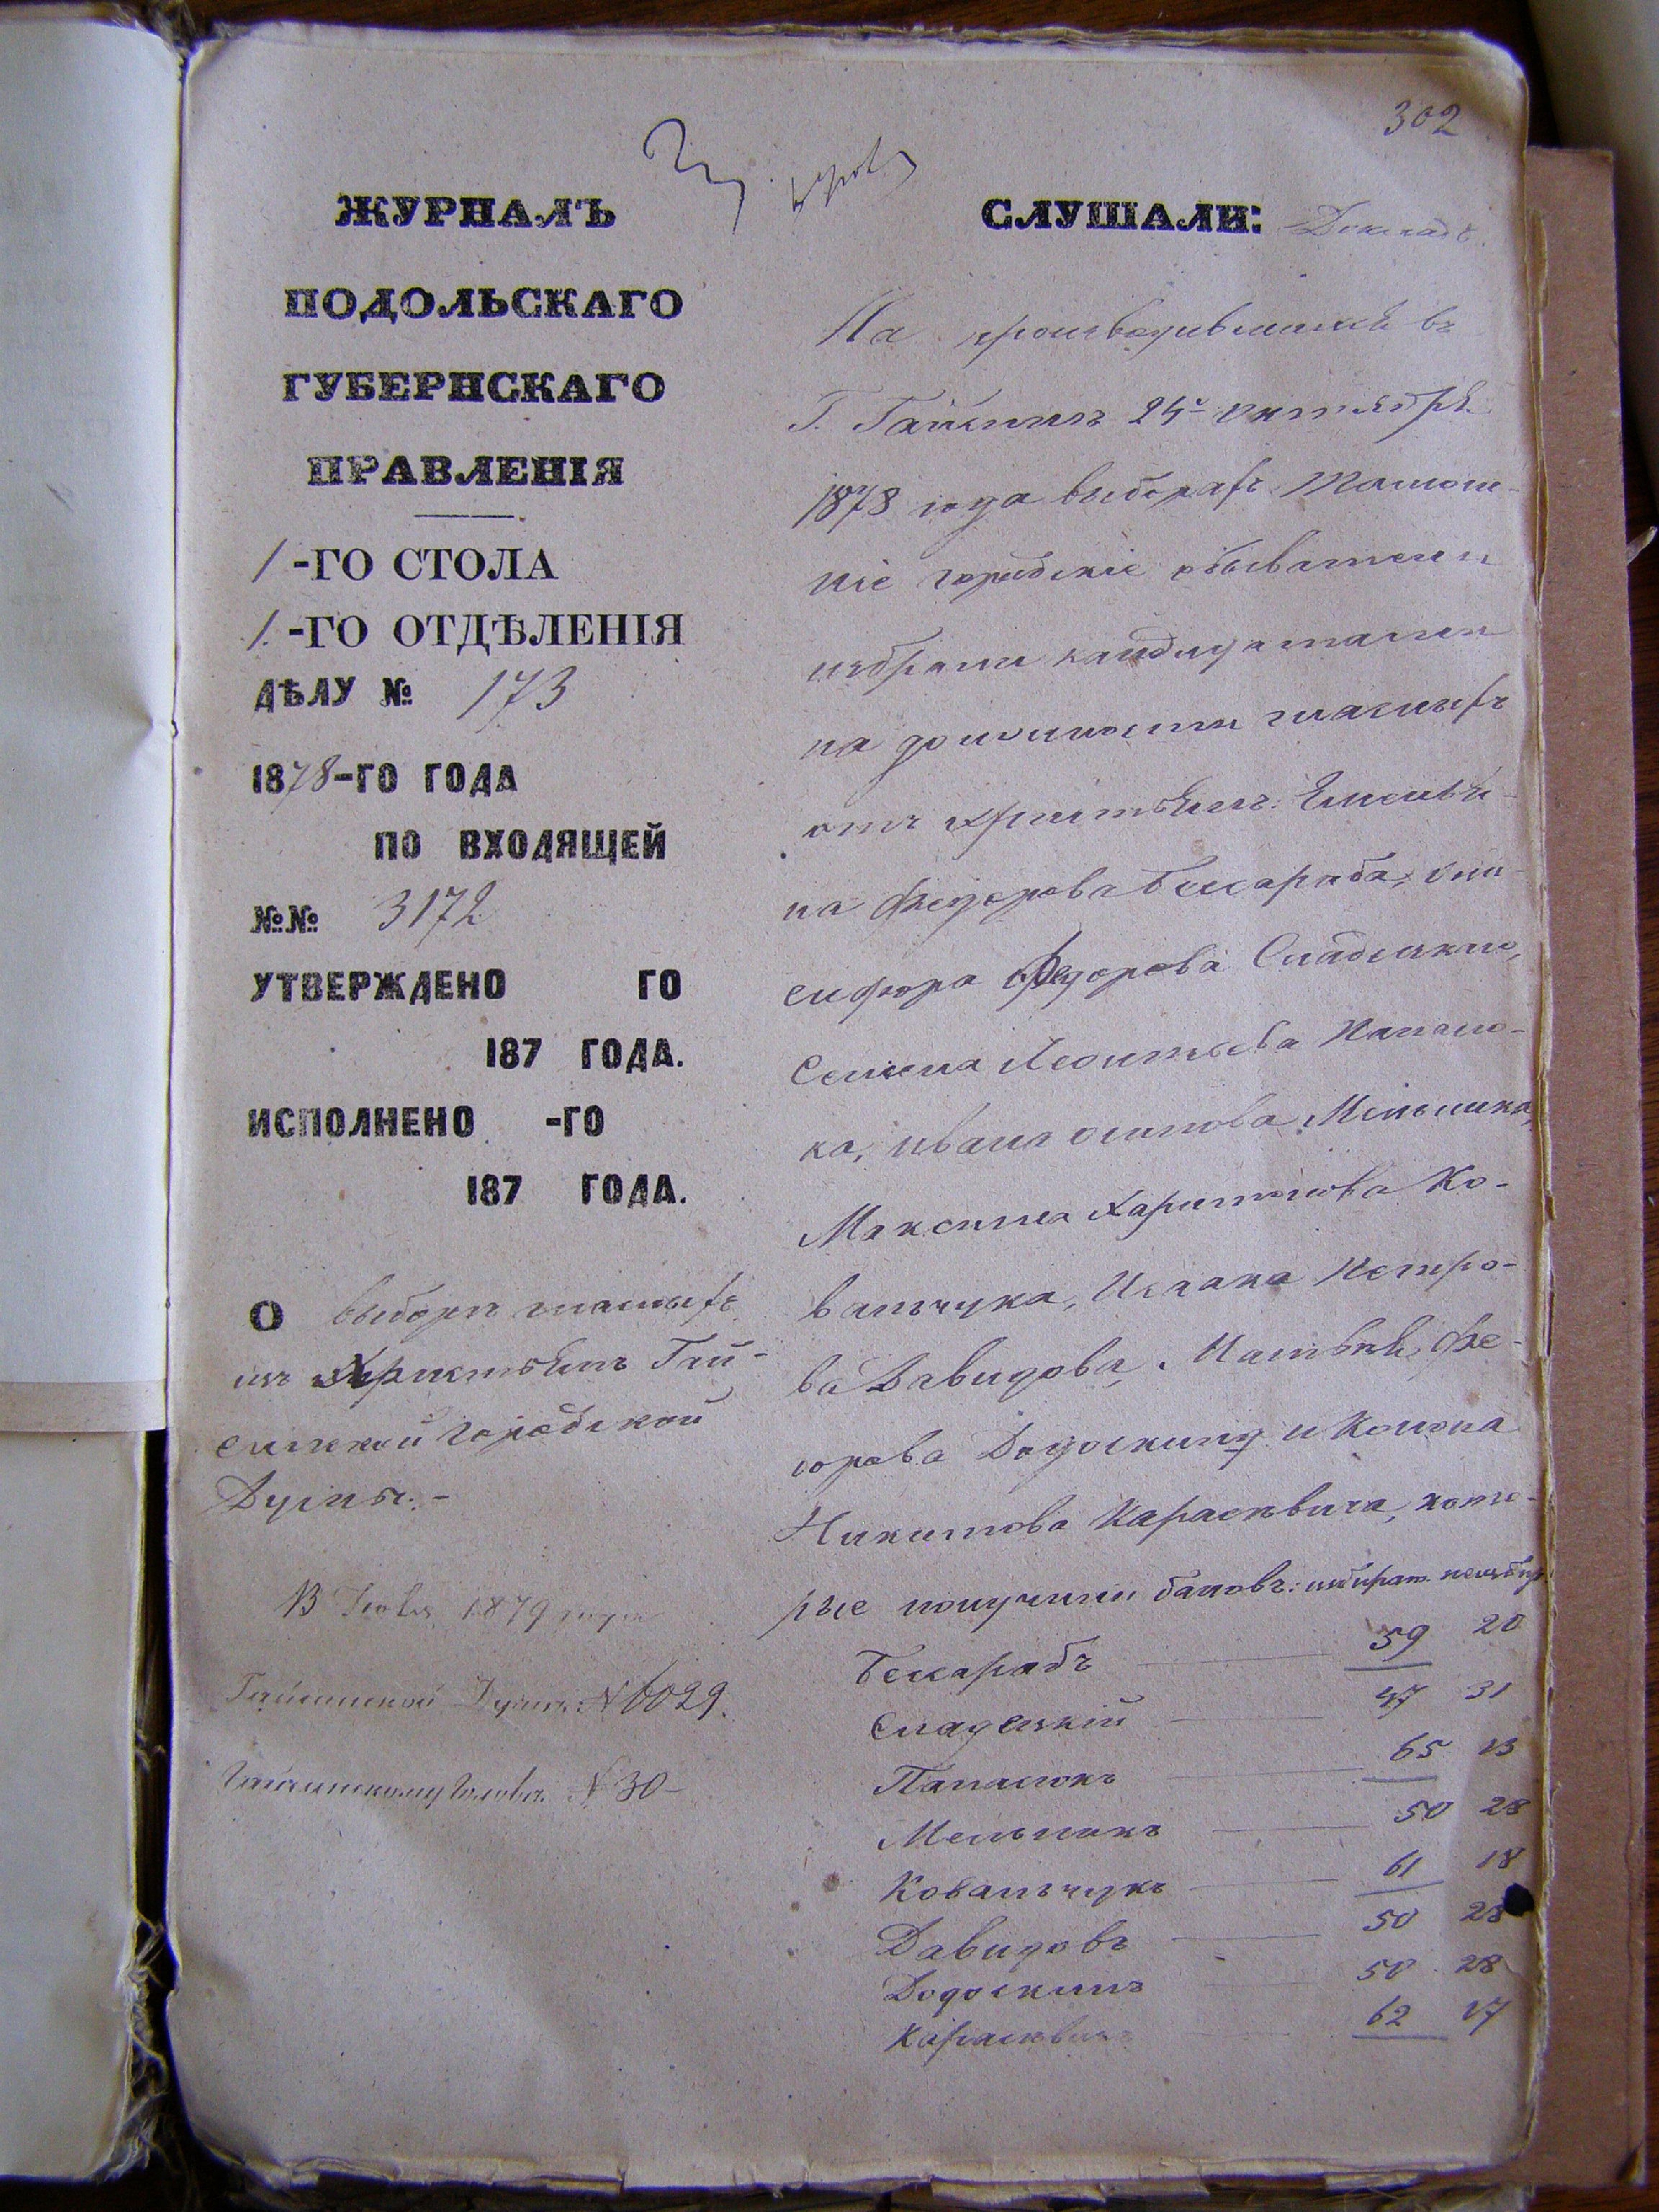 302
ЖУРНАЛЪ
ПОДОЛЬСКАГО
ГУБЕРНСКАГО
ПРАВЛЕНІЯ
1-ГО СТОЛА
1.-ГО ОТДѢЛЕНІЯ
ДѢЛУ № 173
1878-ГО ГОДА
ПО ВХОДЯЩЕЙ
№№ 3172
УТВЕРЖДЕНО ГО
187 ГОДА.
ИСПОЛНЕНО -ГО
187 ГОДА.
О выборѣ гласныхъ
изъ Христіянъ Гай-
синской городской
Думы.-
13 1879 года
Гайсинской Думѣ № 6029.
Гайсинскому Головѣ № 30-
СЛУШАЛИ: Докладъ.
На производившихся въ
Г. Гайсинѣ 24го октября
1878 года выборахъ тамош-
ніе городскіе обыватели
избрали кандидатами
на должности гласныхъ
отъ христіянъ:
на Федорова Бессараба, Они-
сифора Федорова Сладецкаго,
Семена Леонтьева Панасю-
ка, Ивана Осипова Мельника,
Максима Харитонова Ко-
вальчука, Исаака Петро-
ва Давидова, Матвѣя Фе-
дорова Додоскина и Конона
Никитова Карасевича, кото-
рые получили баловъ: избират. неизбир.
Бессарабъ 59 20
Сладецкій 47 31
Панасюкъ 65 13
Мельникъ 50 28
Ковальчукъ 61 18
Давидовъ 50 28
Додоскинъ 50 28
Карасевичъ 62 17